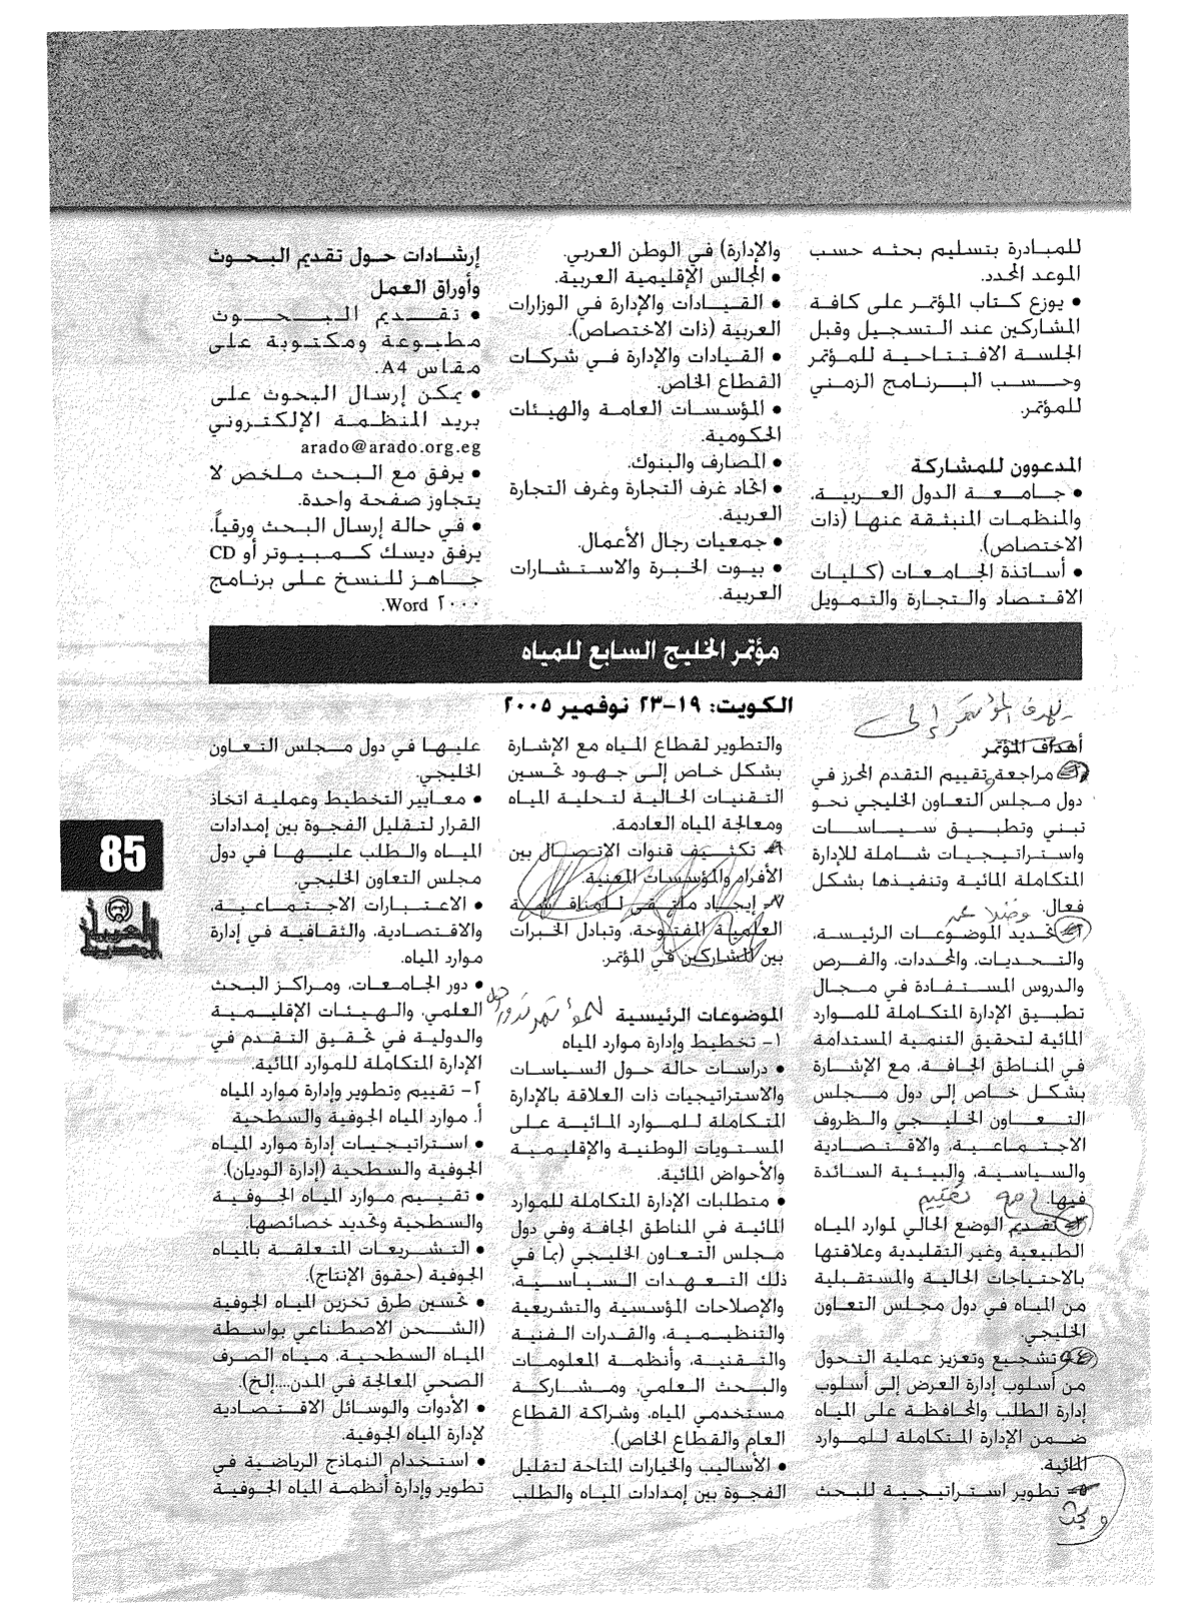 للمبادرة بتسليم بحثه حسب
الموعد المحدد.
• يوزع كتاب المؤتمر على كافة
المشاركين عند التسجيل وقبل
الجلسة الافتتاحية للمؤتمر
وحسب البرنامج الزمني
للمؤتمر.
المدعوون للمشاركة
• جامعة الدول العربية،
والمنظمات المنبثقة عنها (ذات
الاختصاص).
• أساتذة الجامعات (كليات
الاقتصاد والتجارة والتمويل
والإدارة) في الوطن العربي.
• المجالس الإقليمية العربية.
• القيادات والإدارة في الوزارات
العربية (ذات الاختصاص).
• القيادات والإدارة في شركات
القطاع الخاص.
• المؤسسات العامة والهيئات
الحكومية.
• المصارف والبنوك.
• اتحاد غرف التجارة وغرف التجارة
العربية.
• جمعيات رجال الأعمال.
• بيوت الخبرة والاستشارات
العربية.
إرشادات حول تقديم البحوث
وأوراق العمل
• تقديم البحوث
مطبوعة ومكتوبة على
مقاس A4.
• يمكن إرسال البحوث على
بريد المنظمة الإلكتروني
arado@arado.org.eg
• يرفق مع البحث ملخص لا
يتجاوز صفحة واحدة.
• في حالة إرسال البحث ورقياً،
يرفق ديسك كمبيوتر أو CD
جاهز للنسخ على برنامج
Word ٢٠٠٠.
مؤتمر الخليج السابع للمياه
الكويت: ١٩-٢٣ نوفمبر ٢٠٠٥
يهدف المؤتمر إلى
أهداف المؤتمر
١- مراجعة وتقييم التقدم المحرز في
دول مجلس التعاون الخليجي نحو
تبني وتطبيق سياسات
واستراتيجيات شاملة للإدارة
المتكاملة المائية وتنفيذها بشكل
فعال.
وفضلا عن
٢- تحديد الموضوعات الرئيسة،
والتحديات، والمحددات، والفرص
والدروس المستفادة في مجال
تطبيق الإدارة المتكاملة للموارد
المائية لتحقيق التنمية المستدامة
في المناطق الجافة، مع الإشارة
بشكل خاص إلى دول مجلس
التعاون الخليجي والظروف
الاجتماعية، والاقتصادية
والسياسية، والبيئية السائدة
فيها.
تقييم
٣- تقديم الوضع الحالي لموارد المياه
الطبيعية وغير التقليدية وعلاقتها
بالاحتياجات الحالية والمستقبلية
من المياه في دول مجلس التعاون
الخليجي.
٤- تشجيع وتعزيز عملية التحول
من أسلوب إدارة العرض إلى أسلوب
إدارة الطلب والمحافظة على المياه
ضمن الإدارة المتكاملة للموارد
المائية.
٥- تطوير استراتيجية للبحث
والتطوير لقطاع المياه مع الإشارة
بشكل خاص إلى جهود تحسين
التقنيات الحالية لتحلية المياه
ومعالجة المياه العادمة.
٦- تكثيف قنوات الاتصال بين
الأفراد والمؤسسات المعنية.
٧- إيجاد ملتقى للمناقشة
العلمية المفتوحة، وتبادل الخبرات
بين المشاركين في المؤتمر.
الموضوعات الرئيسية للمؤتمر تدور حول
١- تخطيط وإدارة موارد المياه
• دراسات حالة حول السياسات
والاستراتيجيات ذات العلاقة بالإدارة
المتكاملة للموارد المائية على
المستويات الوطنية والإقليمية
والأحواض المائية.
• متطلبات الإدارة المتكاملة للموارد
المائية في المناطق الجافة وفي دول
مجلس التعاون الخليجي (بما في
ذلك التعهدات السياسية،
والإصلاحات المؤسسية والتشريعية
والتنظيمية، والقدرات الفنية
والتقنية، وأنظمة المعلومات
والبحث العلمي، ومشاركة
مستخدمي المياه، وشراكة القطاع
العام والقطاع الخاص).
• الأساليب والخيارات المتاحة لتقليل
الفجوة بين إمدادات المياه والطلب
عليها في دول مجلس التعاون
الخليجي.
• معايير التخطيط وعملية اتخاذ
القرار لتقليل الفجوة بين إمدادات
المياه والطلب عليها في دول
مجلس التعاون الخليجي.
• الاعتبارات الاجتماعية،
والاقتصادية، والثقافية في إدارة
موارد المياه.
• دور الجامعات، ومراكز البحث
العلمي، والهيئات الإقليمية
والدولية في تحقيق التقدم في
الإدارة المتكاملة للموارد المائية.
٢- تقييم وتطوير وإدارة موارد المياه
أ. موارد المياه الجوفية والسطحية
• استراتيجيات إدارة موارد المياه
الجوفية والسطحية (إدارة الوديان).
• تقييم موارد المياه الجوفية
والسطحية وتحديد خصائصها.
• التشريعات المتعلقة بالمياه
الجوفية (حقوق الإنتاج).
• تحسين طرق تخزين المياه الجوفية
(الشحن الاصطناعي بواسطة
المياه السطحية، مياه الصرف
الصحي المعالجة في المدن....إلخ).
• الأدوات والوسائل الاقتصادية
لإدارة المياه الجوفية.
• استخدام النماذج الرياضية في
تطوير وإدارة أنظمة المياه الجوفية
85